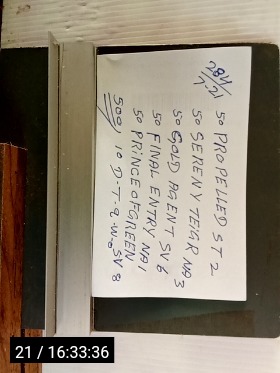 284
7-21
50 PROPELLED ST 2
50 SERENY TEJAR NA 3
50 GOLD AGENT SV 6
50 FINAL ENTRY NA 1
50 PRINCE OF GREEN
500/ 10 D-T-2-W- SV 8
21 / 16:33:36